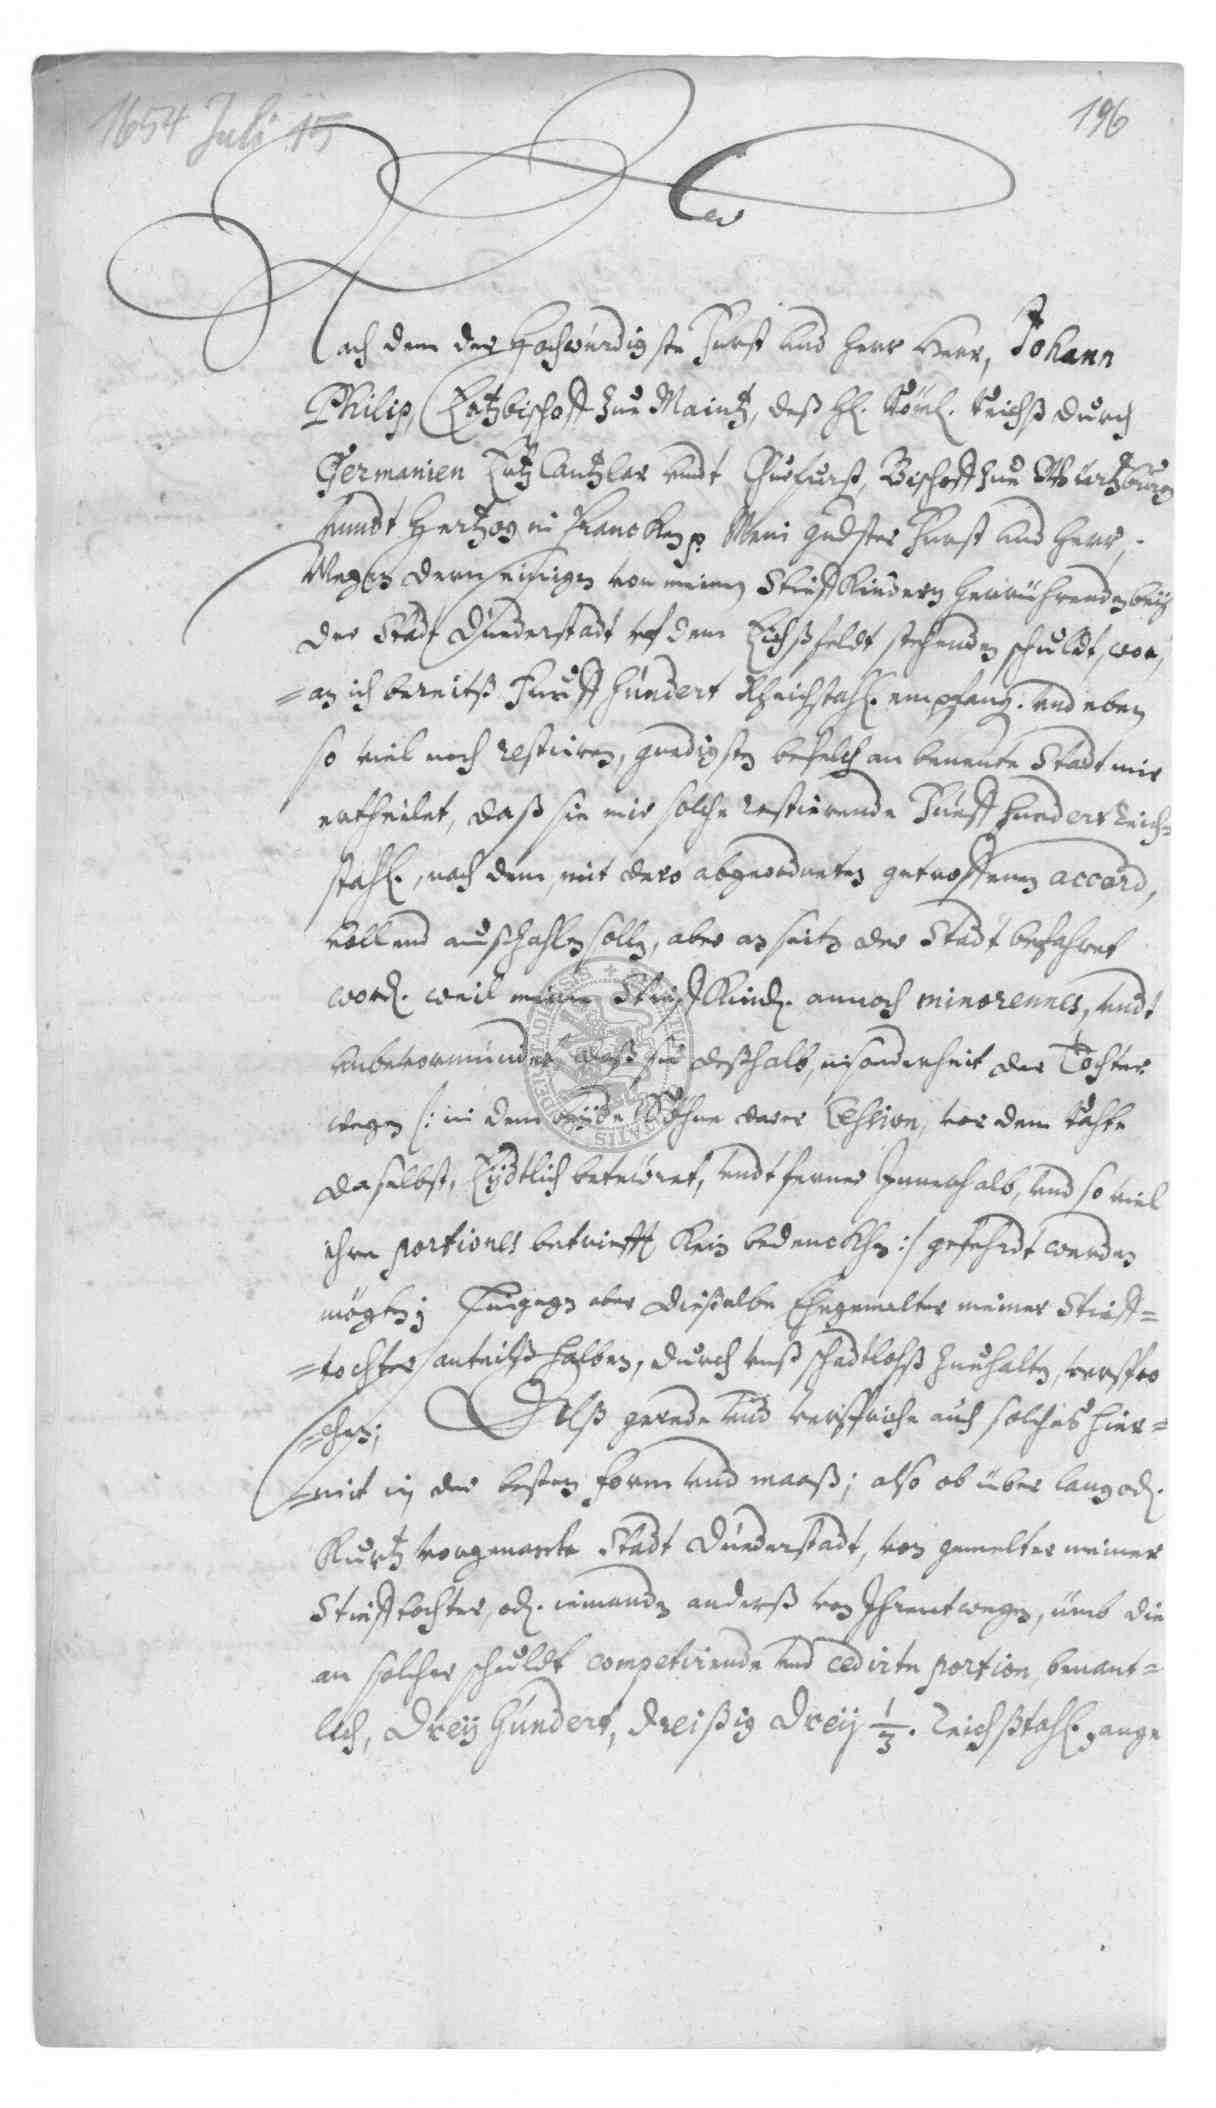 1654 Juli 15
196
Nach dem der Hochwürdigste Fürst und Herr Herr, Johann
Philip, Ertzbischoff zue Maintz, deß Hl. Röml. Reichß durch
Germanien Ertz Cantzler undt Churfurst, Bischoff zue Würtzburg
unndt Hertzog in Francken p. Mein gndster Fürst und Herr,
Wegen deren einigen von meinen Stieff Kindern herrührenden beÿ
der Stadt Düderstadt uf dem Eichßfeldt stehenden schuldt, wor,
=an ich bereitß Fünff hündert Rheichstahl. empfang. und eben
so viel noch restiren, gnedigsten befelch an benente Stadt mir
ertheilet, daß sie mir solche restierende Fünff hundert Reich=
stahl., nach dem, mit dero abgeordneten getroffenen accord,
vollend außzahlen solle, aber an seiten der Stadt befahret
word. weil meine Stieff Kind. annoch minorennes, undt
unbevormündet, daß sie deßhalb, insonderheit der Tochter
wegen /: in dem beÿde Söhne darer Cession, vor dem Rahte
daselbst, Eÿdtlich beteüret, undt ferner Innerhalb, und so viel
ihre portiones betriefft kein bedenckhen :/ gefehrdt werden
mögten; Hingegen aber dieselbe Ehegemelter meiner Stieff=
=tochter antheilß halben, durch auß schadtlohß zuehalten, verspro
=chen; Alß gerede und verspriche auch solches hier=
=mit in der besten form und maaß; also ob über lang od.
kurtz vorgenante Stadt Düderstadt, von gemelter meiner
Stieff tochter, od. iemanden anderß von Ihrentwegen, ümb die
an solcher schuldt competirende und cedirte portion, benant=
lich, Dreÿ hündert, dreißig dreÿ 1/3. Reichßtahl. ange